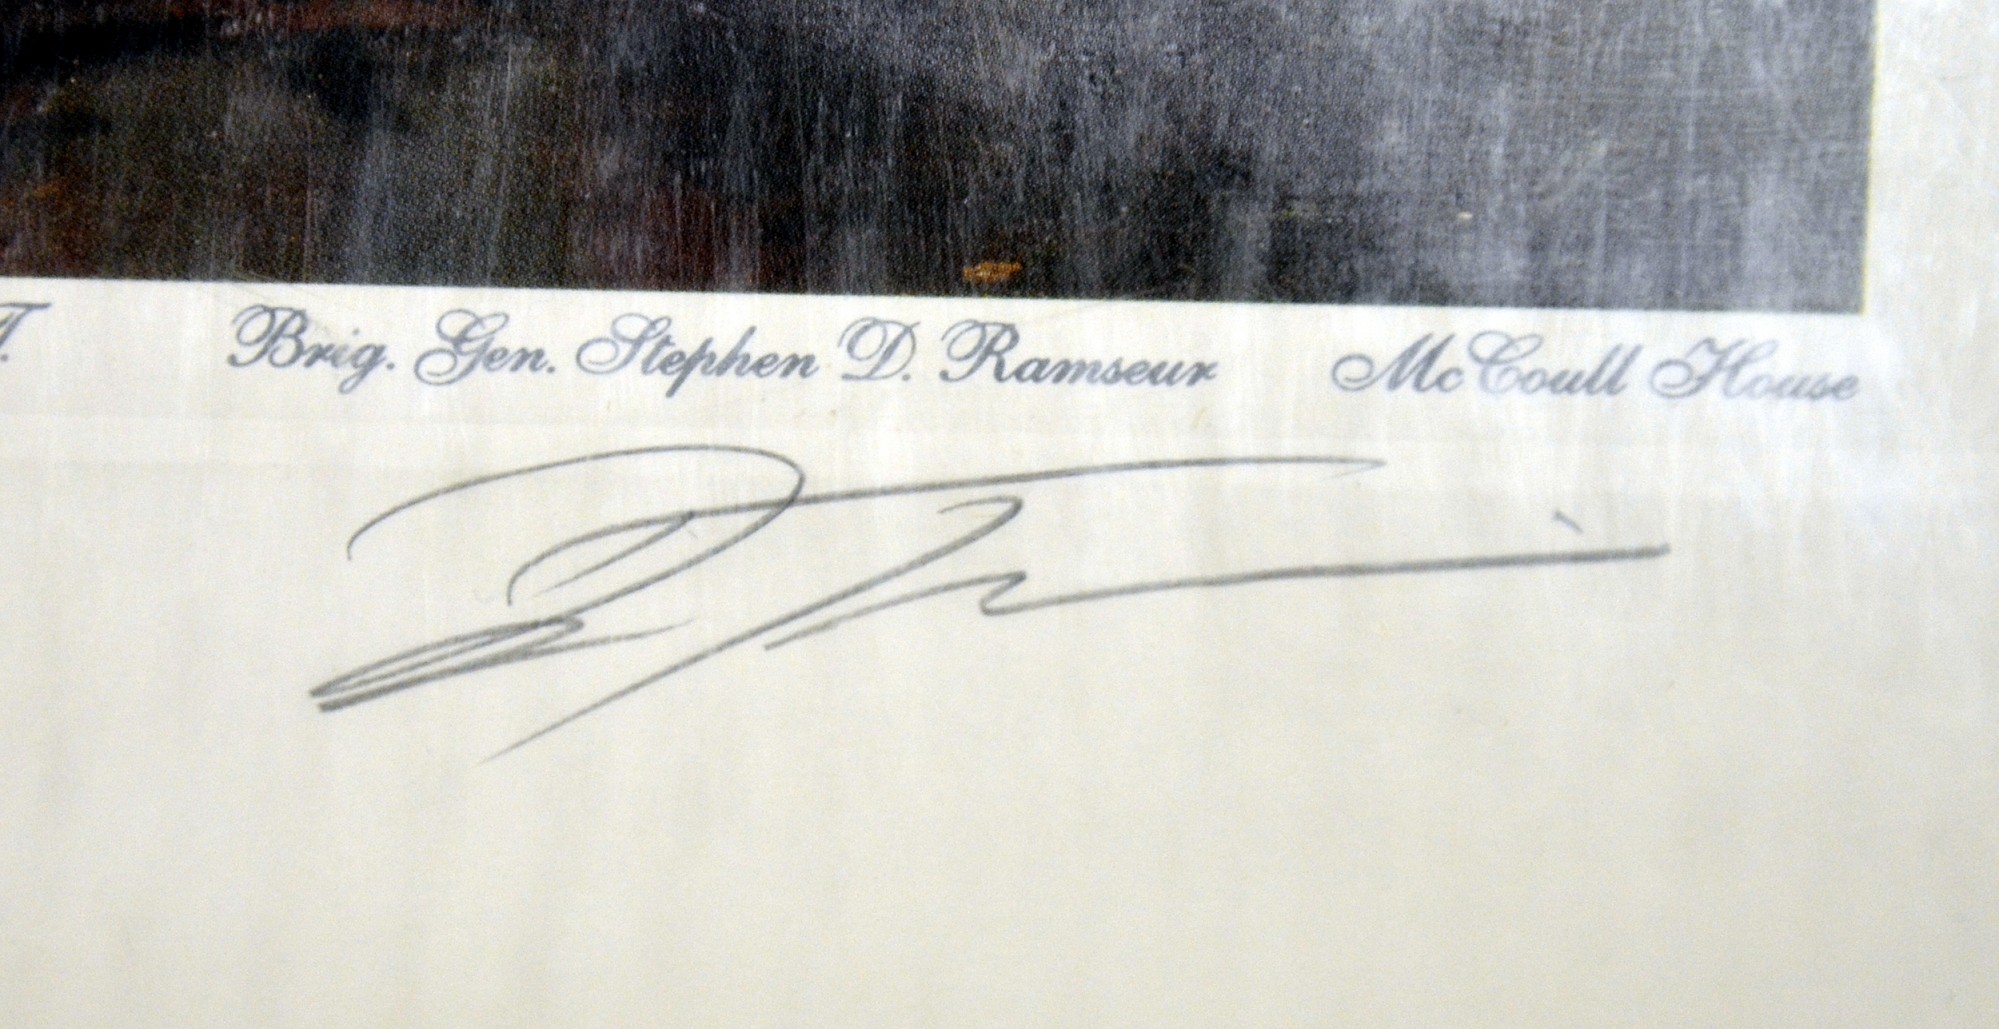 T. Brig. Gen. Stephen D. Ramseur McCoull House